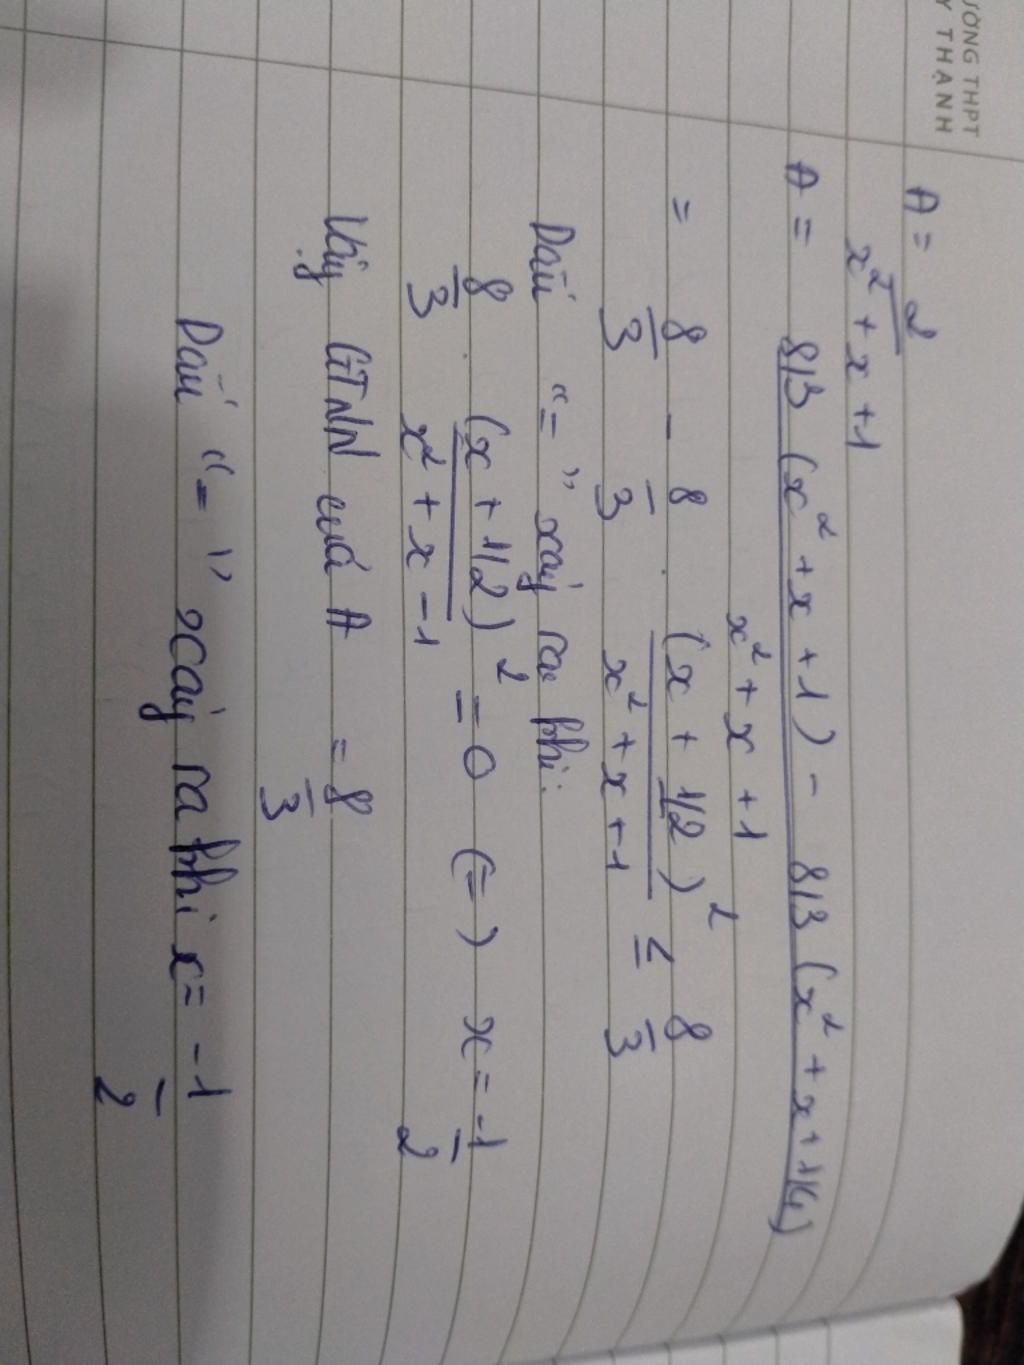 ƯỜNG THPT
Y THẠNH
A = 2
x² + x + 1
A = 8/3 (x² + x + 1) - 8/3 (x² + x + 1/4)
x² + x + 1
= 8/3 - 8/3 . (x + 1/2)² / x² + x + 1 ≤ 8/3
Dấu "=" xảy ra khi:
8/3 . (x + 1/2)² / x² + x - 1 = 0 (=) x = -1/2
Vậy GTNN của A = 8/3
Dấu "=" xảy ra khi x = -1/2